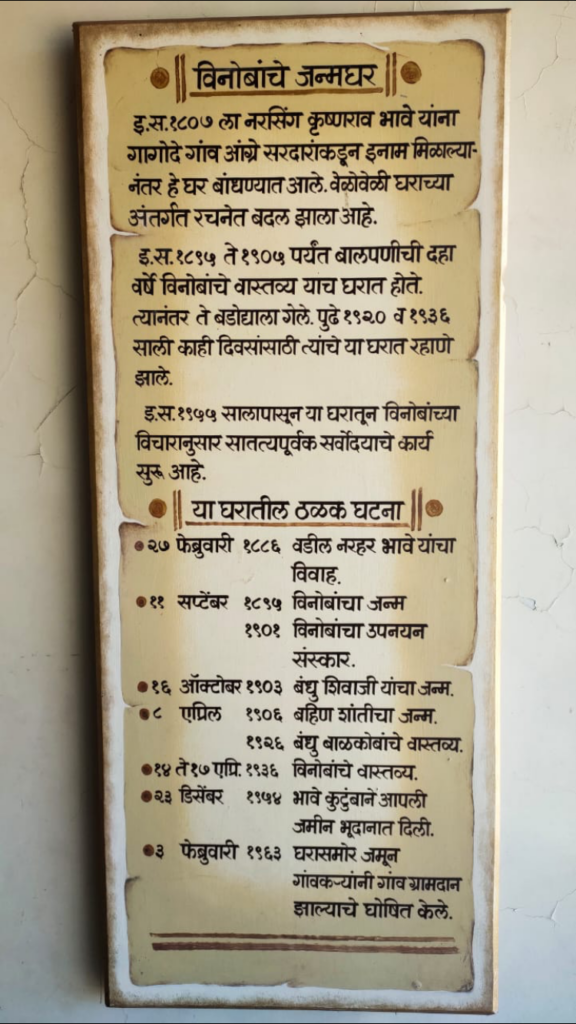 ॥ विनोबांचे जन्मघर ॥
इ.स.१८०७ ला नरसिंग कृष्णराव भावे यांना
गागोदे गांव आंग्रे सरदारांकडून इनाम मिळाल्या-
नंतर हे घर बांधण्यात आले. वेळोवेळी घराच्या
अंतर्गत रचनेत बदल झाला आहे.
इ.स.१८९५ ते १९०५ पर्यंत बालपणीची दहा
वर्षे विनोबांचे वास्तव्य याच घरात होते.
त्यानंतर ते बडोद्याला गेले. पुढे १९२० व १९३६
साली काही दिवसांसाठी त्यांचे या घरात रहाणे
झाले.
इ.स.१९५५ सालापासून या घरातून विनोबांच्या
विचारानुसार सातत्यपूर्वक सर्वोदयाचे कार्य
सुरू आहे.
॥ या घरातील ठळक घटना ॥
२७ फेब्रुवारी १८८६ वडील नरहर भावे यांचा
विवाह.
११ सप्टेंबर १८९५ विनोबांचा जन्म
१९०१ विनोबांचा उपनयन
संस्कार.
१६ ऑक्टोबर १९०३ बंधु शिवाजी यांचा जन्म.
८ एप्रिल १९०६ बहिण शांतीचा जन्म.
१९२६ बंधु बाळकोबांचे वास्तव्य.
१४ ते १७ एप्रि. १९३६ विनोबांचे वास्तव्य.
२३ डिसेंबर १९५४ भावे कुटुंबाने आपली
जमीन भूदानात दिली.
३ फेब्रुवारी १९६३ घरासमोर जमून
गांवकऱ्यांनी गांव ग्रामदान
झाल्याचे घोषित केले.